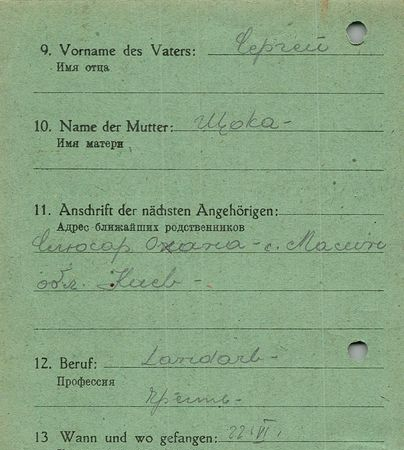 9. Vorname des Vaters: Сергей
Имя отца
10. Name der Mutter: Щока -
Имя матери
11. Anschrift der nächsten Angehörigen:
Адрес ближайших родственников
Слюсар Оxана - с.
обл. Киев -
12. Beruf: Landarb -
Профессия
13 Wann und wo gefangen: 22. VI.